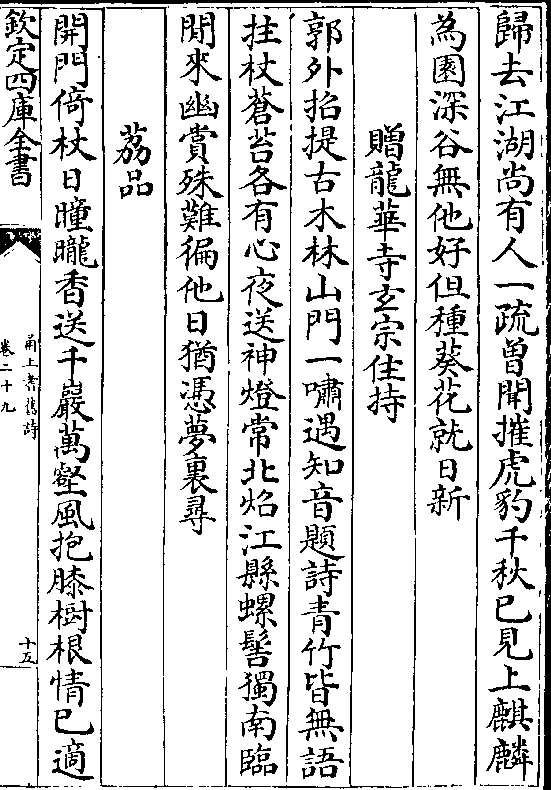 歸去江湖尚有人一疏曾聞摧虎豹千秋已見上麒麟
為園深谷無他好但種葵花就日新
贈龍華寺玄宗住持
郭外招提古木林山門一嘯遇知音題詩青竹皆無語
拄杖蒼苔各有心夜送神燈常北焰江縣螺髻獨南臨
閒來幽賞殊難徧他日猶憑夢裏尋
荔品
開門倚杖日曈曨香送千巖萬壑風抱膝樹根情已適
欽定四庫全書
甬上耆舊詩
卷二十九
十五